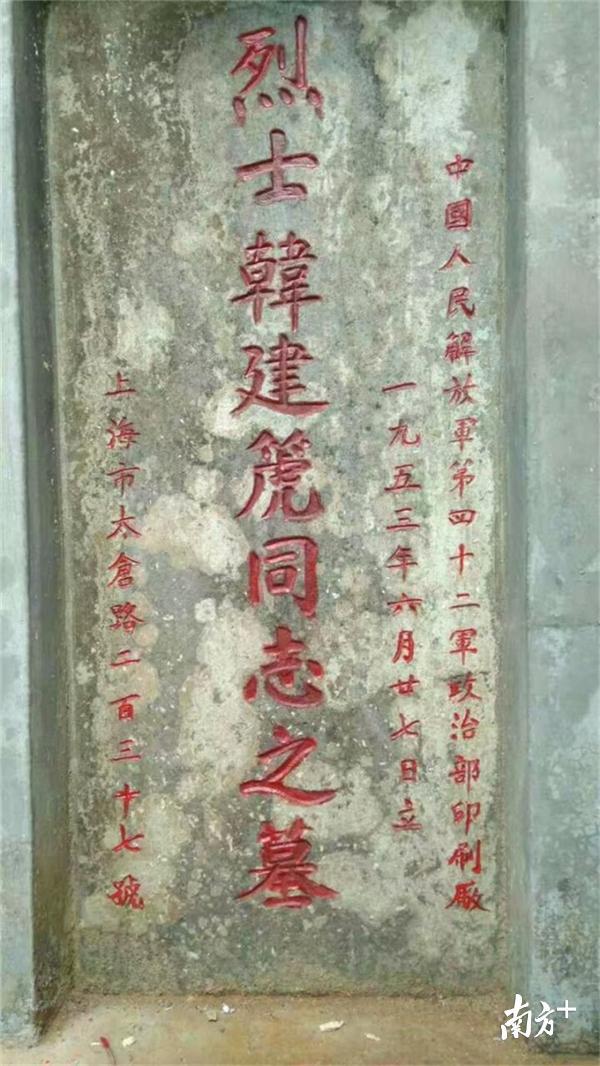 中國人民解放軍第四十二軍政治部印刷廠
一九五三年六月廿七日立
烈士韓建箎同志之墓
上海市太倉路二百三十七號
南方+